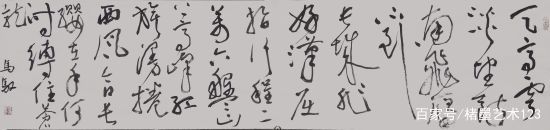 天高雲
淡望断
南飛雁
不到
长城非
好漢屈
指行程二
萬六盤山
上高峰红
旗漫捲
西風今日长
缨在手何
时缚住苍
龍
百家号/楮墨艺术123